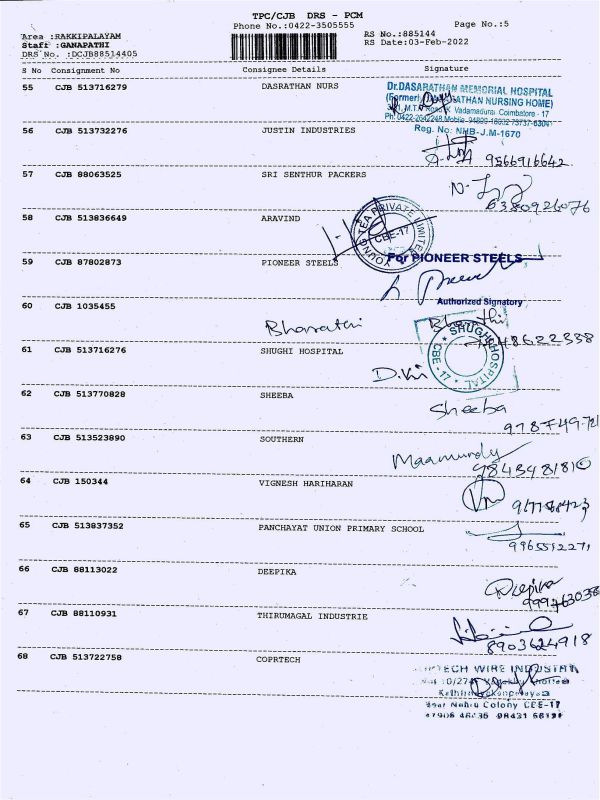 TPC/CJB DRS - PCM
Phone No.:0422-3505555
Page No.:5
Area :RAKKIPALAYAM
RS No.:885144
Staff :GANAPATHI
RS Date:03-Feb-2022
DRS No. :DCJB88514405
S No Consignment No Consignee Details Signature
55 CJB 513716279 DASRATHAN NURS
Dr.DASARATHAN MEMORIAL HOSPITAL
SATHAN NURSING HOME)
Vadamadurai Coimbatore - 17
Reg. No: NHB-J.M-1670
56 CJB 513732276 JUSTIN INDUSTRIES
9566916642
57 CJB 88063525 SRI SENTHUR PACKERS
6380926076
58 CJB 513836649 ARAVIND
TEA PRIVATE LIMITED
CBE-17
59 CJB 87802873 PIONEER STEELS
For PIONEER STEELS
Authorized Signatory
60 CJB 1035455
Bharathi
61 CJB 513716276 SHUGHI HOSPITAL
SHUGHI HOSPITAL
CBE - 17
62 CJB 513770828 SHEEBA
Sheeba
63 CJB 513523890 SOUTHERN
9843481810
64 CJB 150344 VIGNESH HARIHARAN
65 CJB 513837352 PANCHAYAT UNION PRIMARY SCHOOL
9965512271
66 CJB 88113022 DEEPIKA
Deepika
67 CJB 88110931 THIRUMAGAL INDUSTRIE
8903624918
68 CJB 513722758 COPRTECH
TECH WIRE INDUSTRY
Near Nehru Colony CBE-17